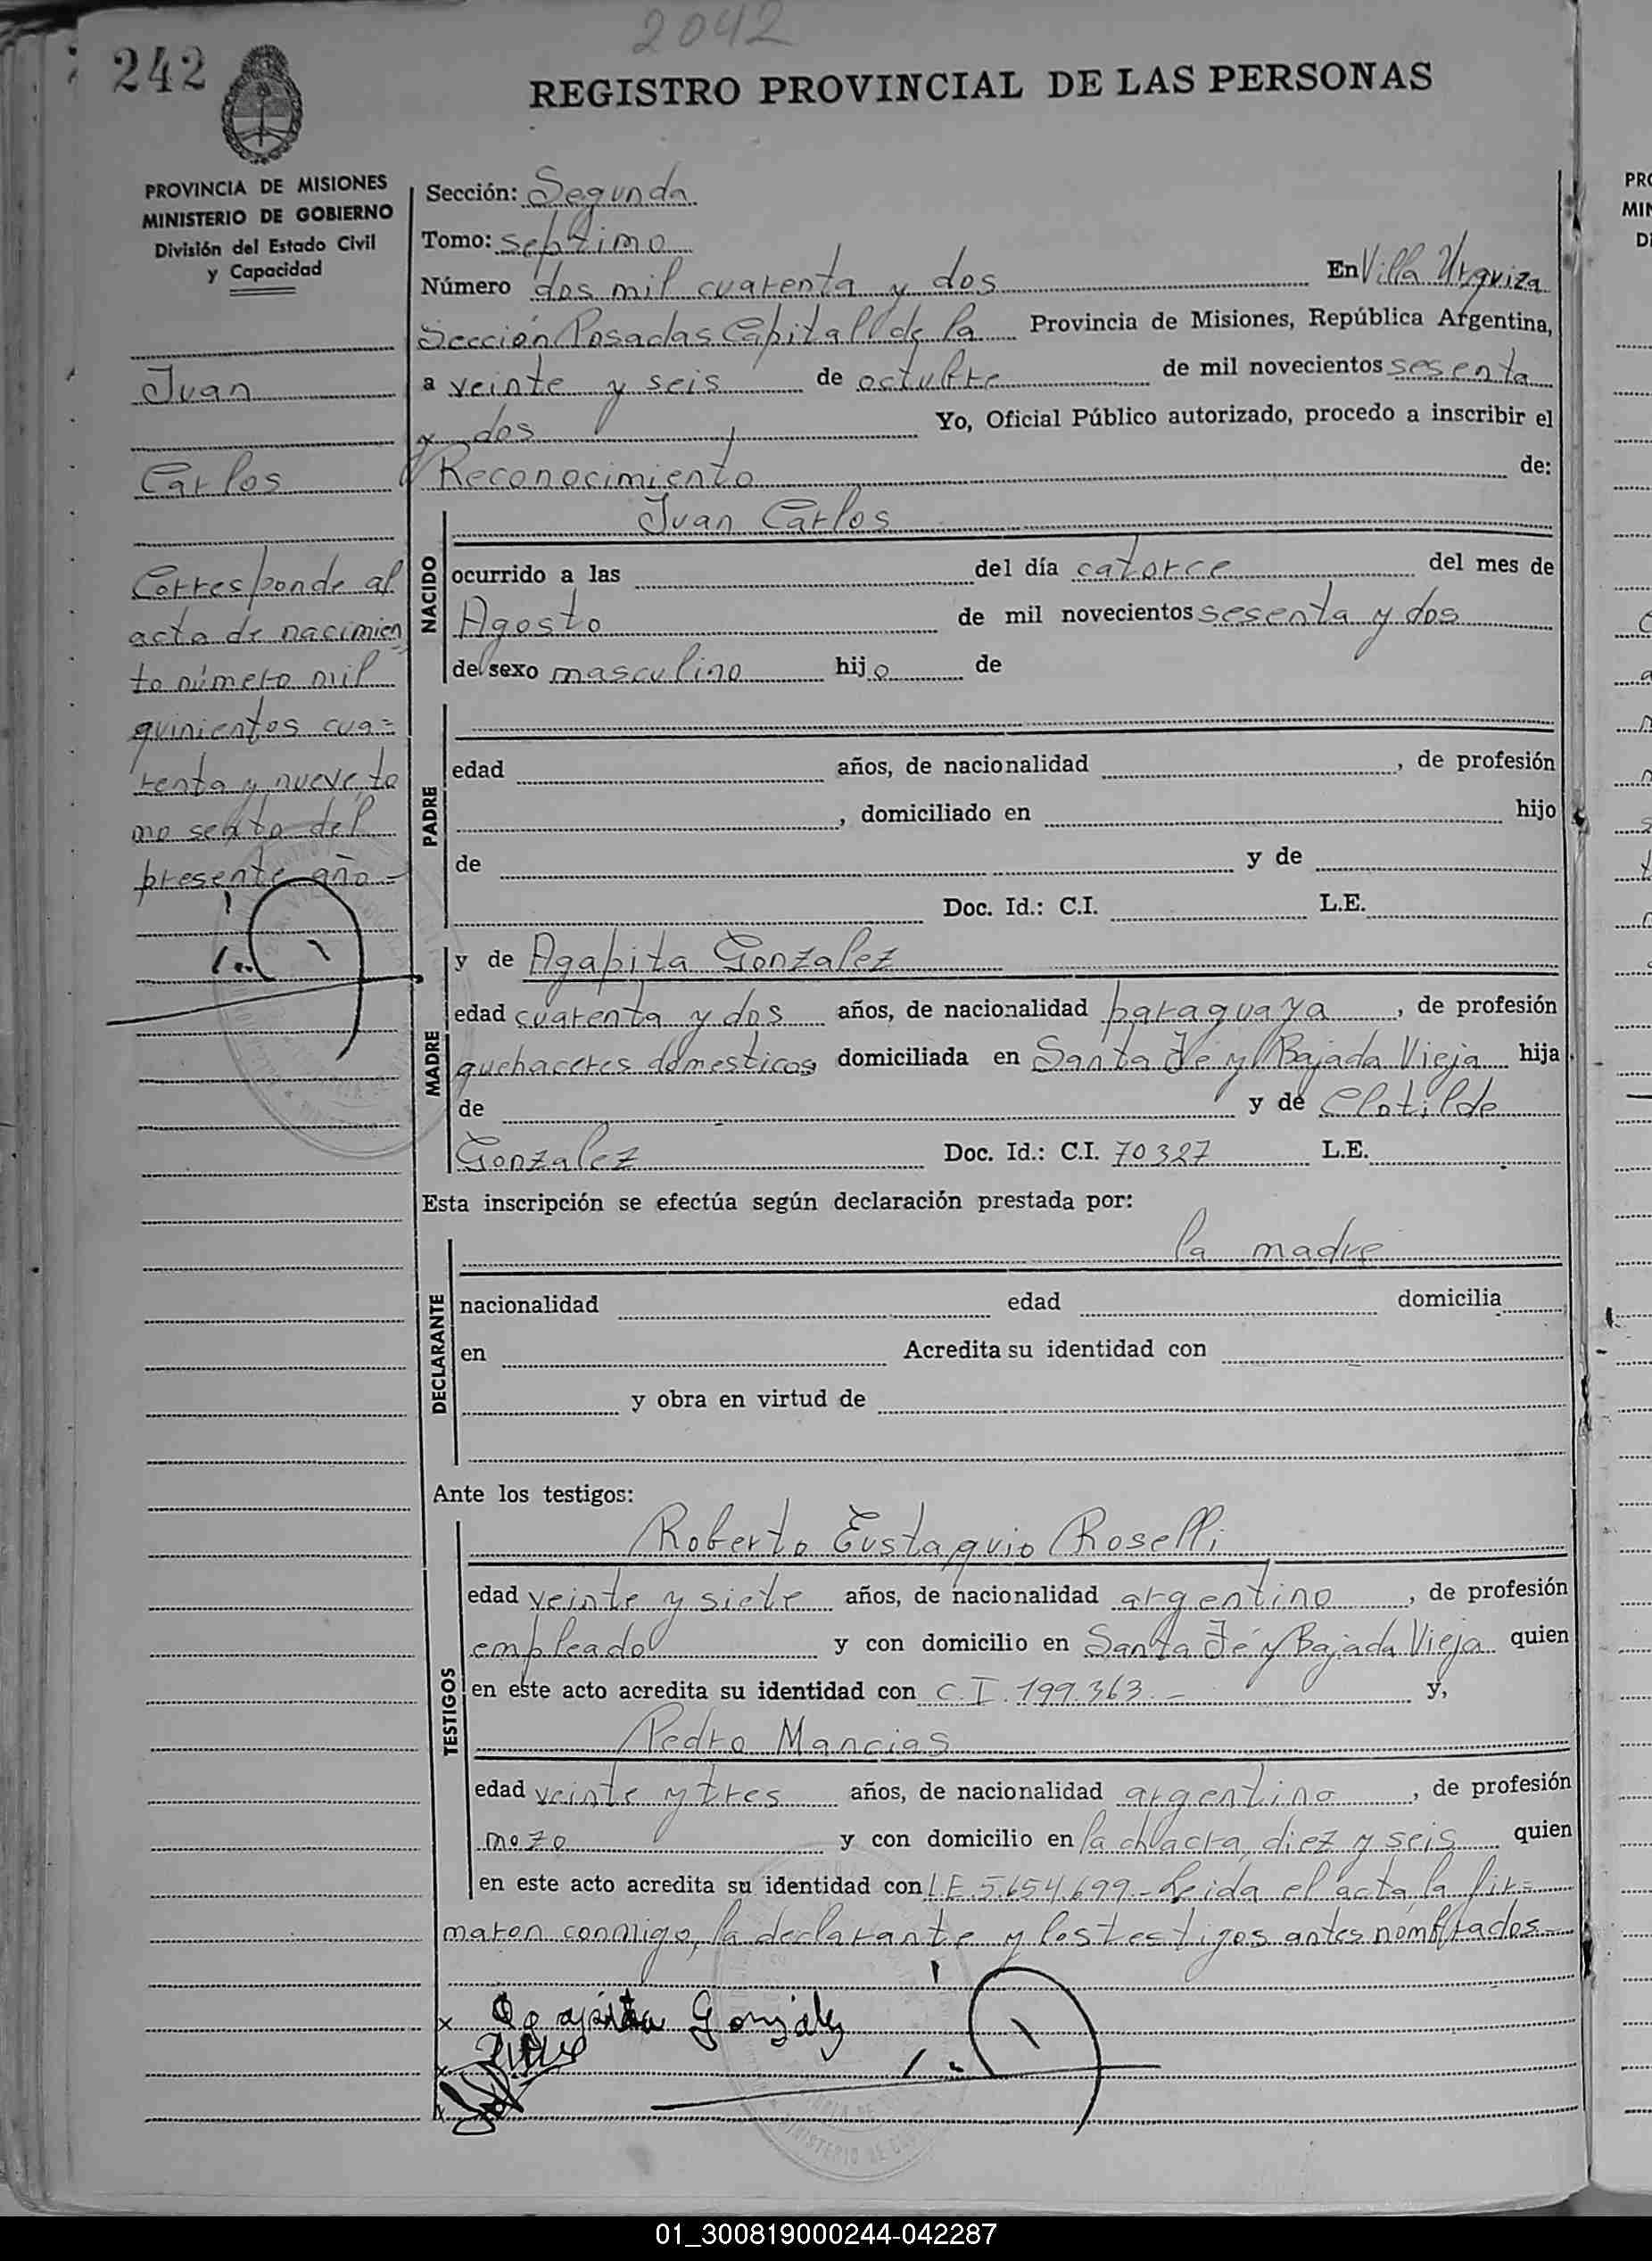 2042
242
REGISTRO PROVINCIAL DE LAS PERSONAS
PROVINCIA DE MISIONES
MINISTERIO DE GOBIERNO
División del Estado Civil
y Capacidad
Juan
Carlos
Corresponde al
acta de nacimien
to número mil
quinientos cua=
renta y nueve, to
mo sexto del
presente año -
Sección: Segunda
Tomo: septimo
Número dos mil cuarenta y dos En Villa Urquiza
Sección Posadas Capital de la Provincia de Misiones, República Argentina,
a veinte y seis de octubre de mil novecientos sesenta
y dos Yo, Oficial Público autorizado, procedo a inscribir el
Reconocimiento de:
NACIDO
Juan Carlos
ocurrido a las del día catorce del mes de
Agosto de mil novecientos sesenta y dos
de sexo masculino hijo de
PADRE
edad años, de nacionalidad , de profesión
, domiciliado en hijo
de y de
Doc. Id.: C.I. L.E.
MADRE
y de Agapita Gonzalez
edad cuarenta y dos años, de nacionalidad paraguaya , de profesión
quehaceres domesticos domiciliada en Santa Fé y Bajada Vieja hija
de y de Clotilde
Gonzalez Doc. Id.: C.I. 70327 L.E.
Esta inscripción se efectúa según declaración prestada por:
DECLARANTE
la madre
nacionalidad edad domicilia
en Acredita su identidad con
y obra en virtud de
Ante los testigos:
TESTIGOS
Roberto Eustaquio Roselli
edad veinte y siete años, de nacionalidad argentino , de profesión
empleado y con domicilio en Santa Fé y Bajada Vieja quien
en este acto acredita su identidad con C.I. 199.363.- y,
Pedro Mancias
edad veinte y tres años, de nacionalidad argentino , de profesión
mozo y con domicilio en la chacra diez y seis quien
en este acto acredita su identidad con L.E. 5.654.699.- Leida el acta, la fir=
maron conmigo, la declarante y los testigos antes nombrados.-
x Agapita González
x
x
01_300819000244-042287